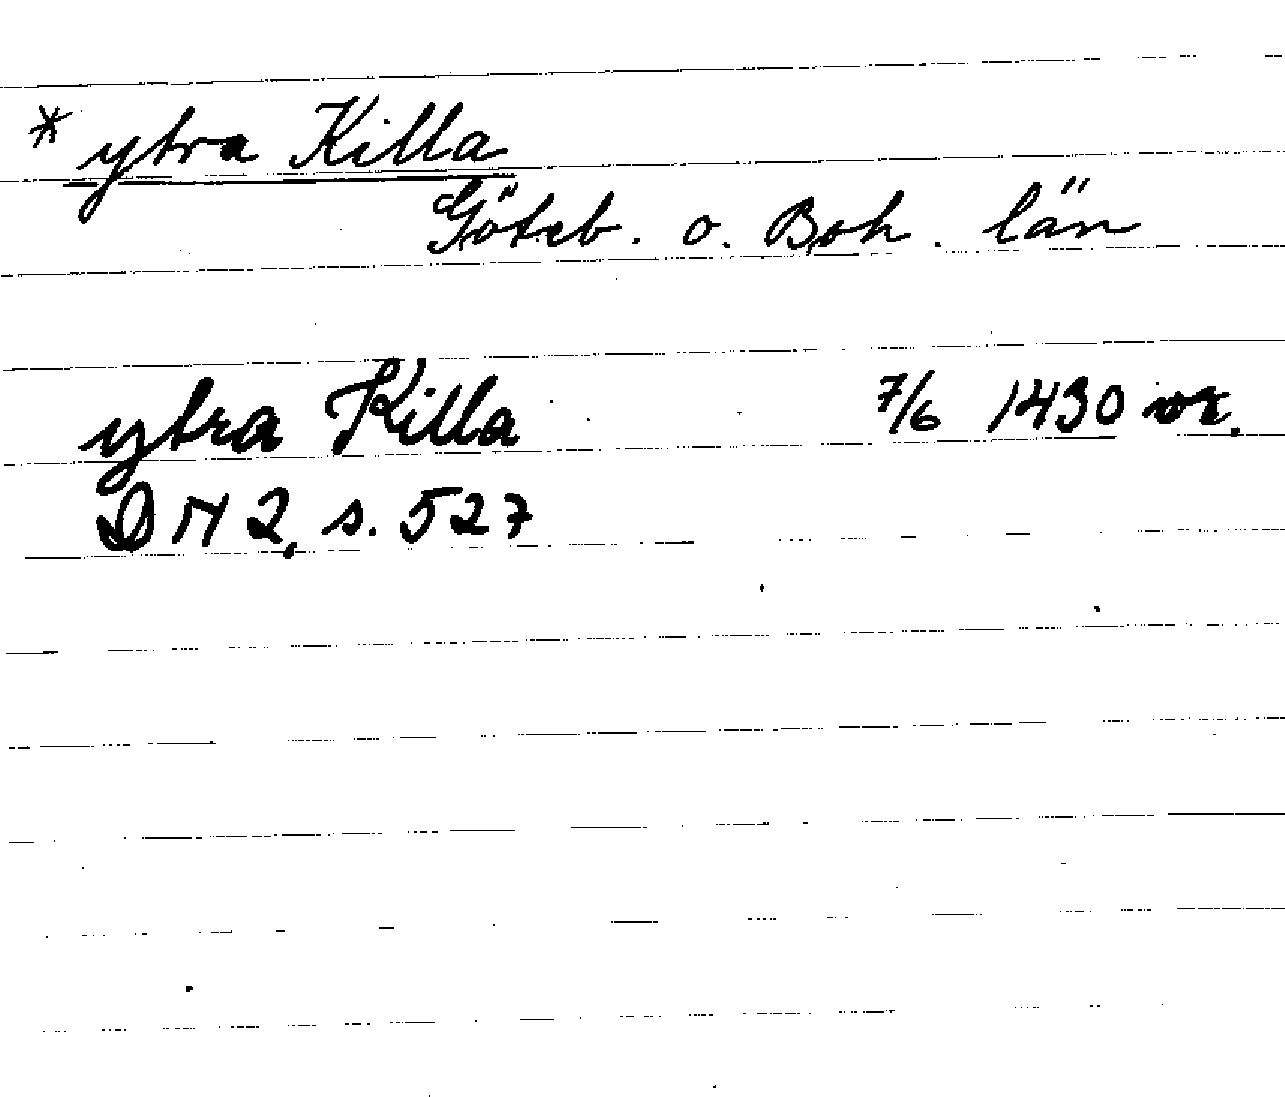 * ytra Killa
Göteb. o. Boh. län
ytra Killa 7/6 1430 or.
DN 2, s. 527